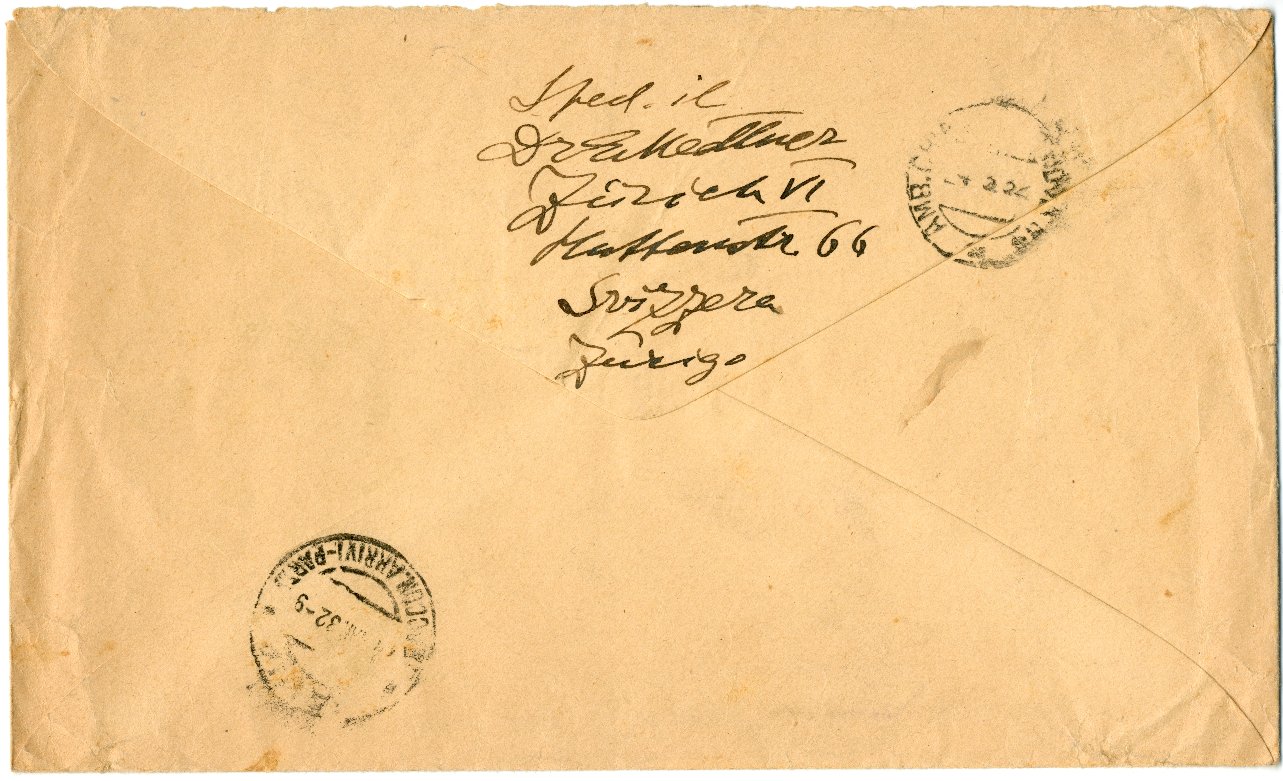 Sped. il
Dr E. Medtner
Zürich VI
Huttenstr 66
Svizzera
Zürigo
AMB.
ARRIVI-PAR
32-9